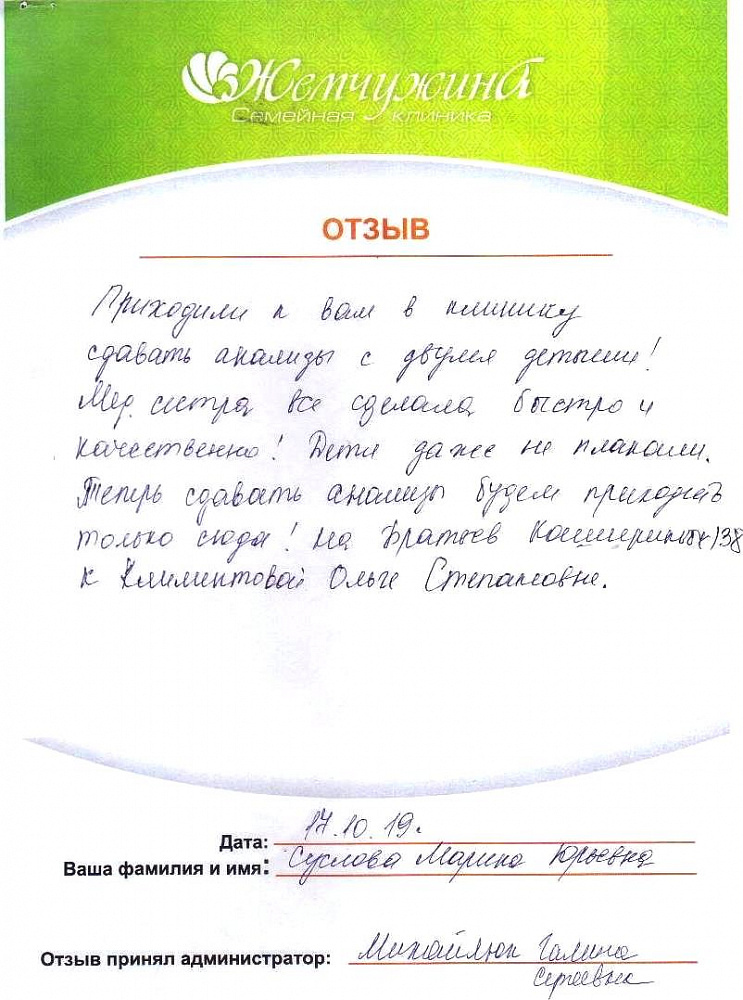 Жемчужина
Семейная клиника
ОТЗЫВ
Приходили к вам в клинику
сдавать анализы с двумя детьми!
Мед. сестра все сделала быстро и
качественно! Дети даже не плакали.
Теперь сдавать анализы будем приходить
только сюда! на Братьев Кашириных 138
к Климинтовой Ольге Степановне.
Дата: 17.10.19г.
Ваша фамилия и имя: Суслова Марина Юрьевна
Отзыв принял администратор: Михайлюк Галина
Сергеевна